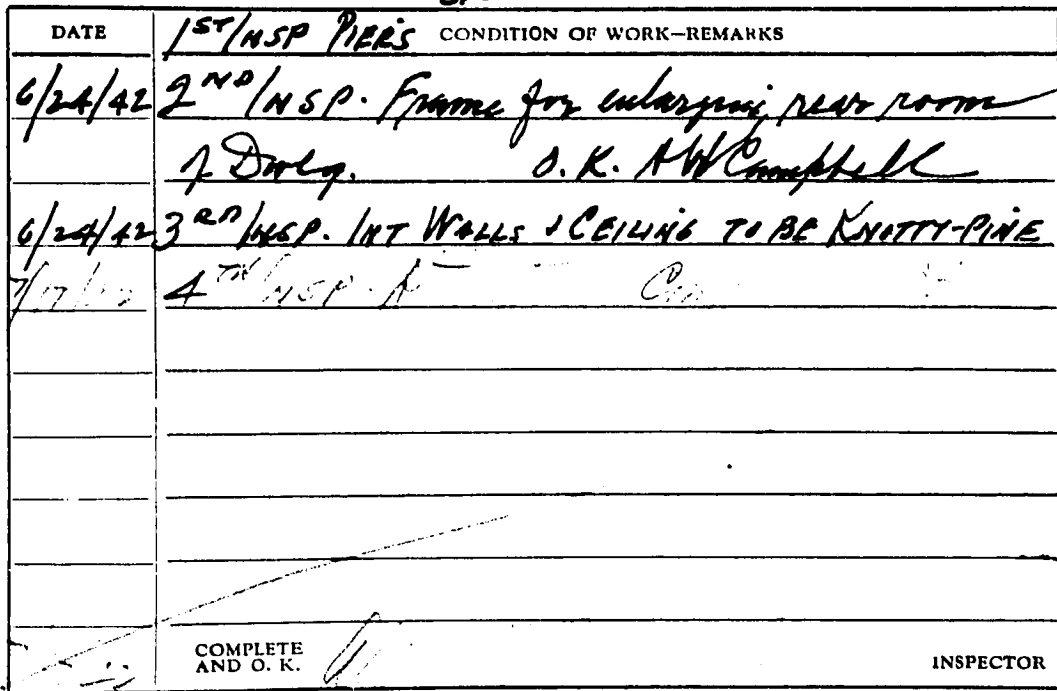 DATE 1ST INSP PIERS CONDITION OF WORK—REMARKS
6/24/42 2ND INSP. Frame for enlarging rear room
of Dwlg. O.K. AW Campbell
6/24/42 3RD INSP. INT WALLS & CEILING TO BE KNOTTY-PINE
4TH INSP.
COMPLETE
AND O. K. INSPECTOR